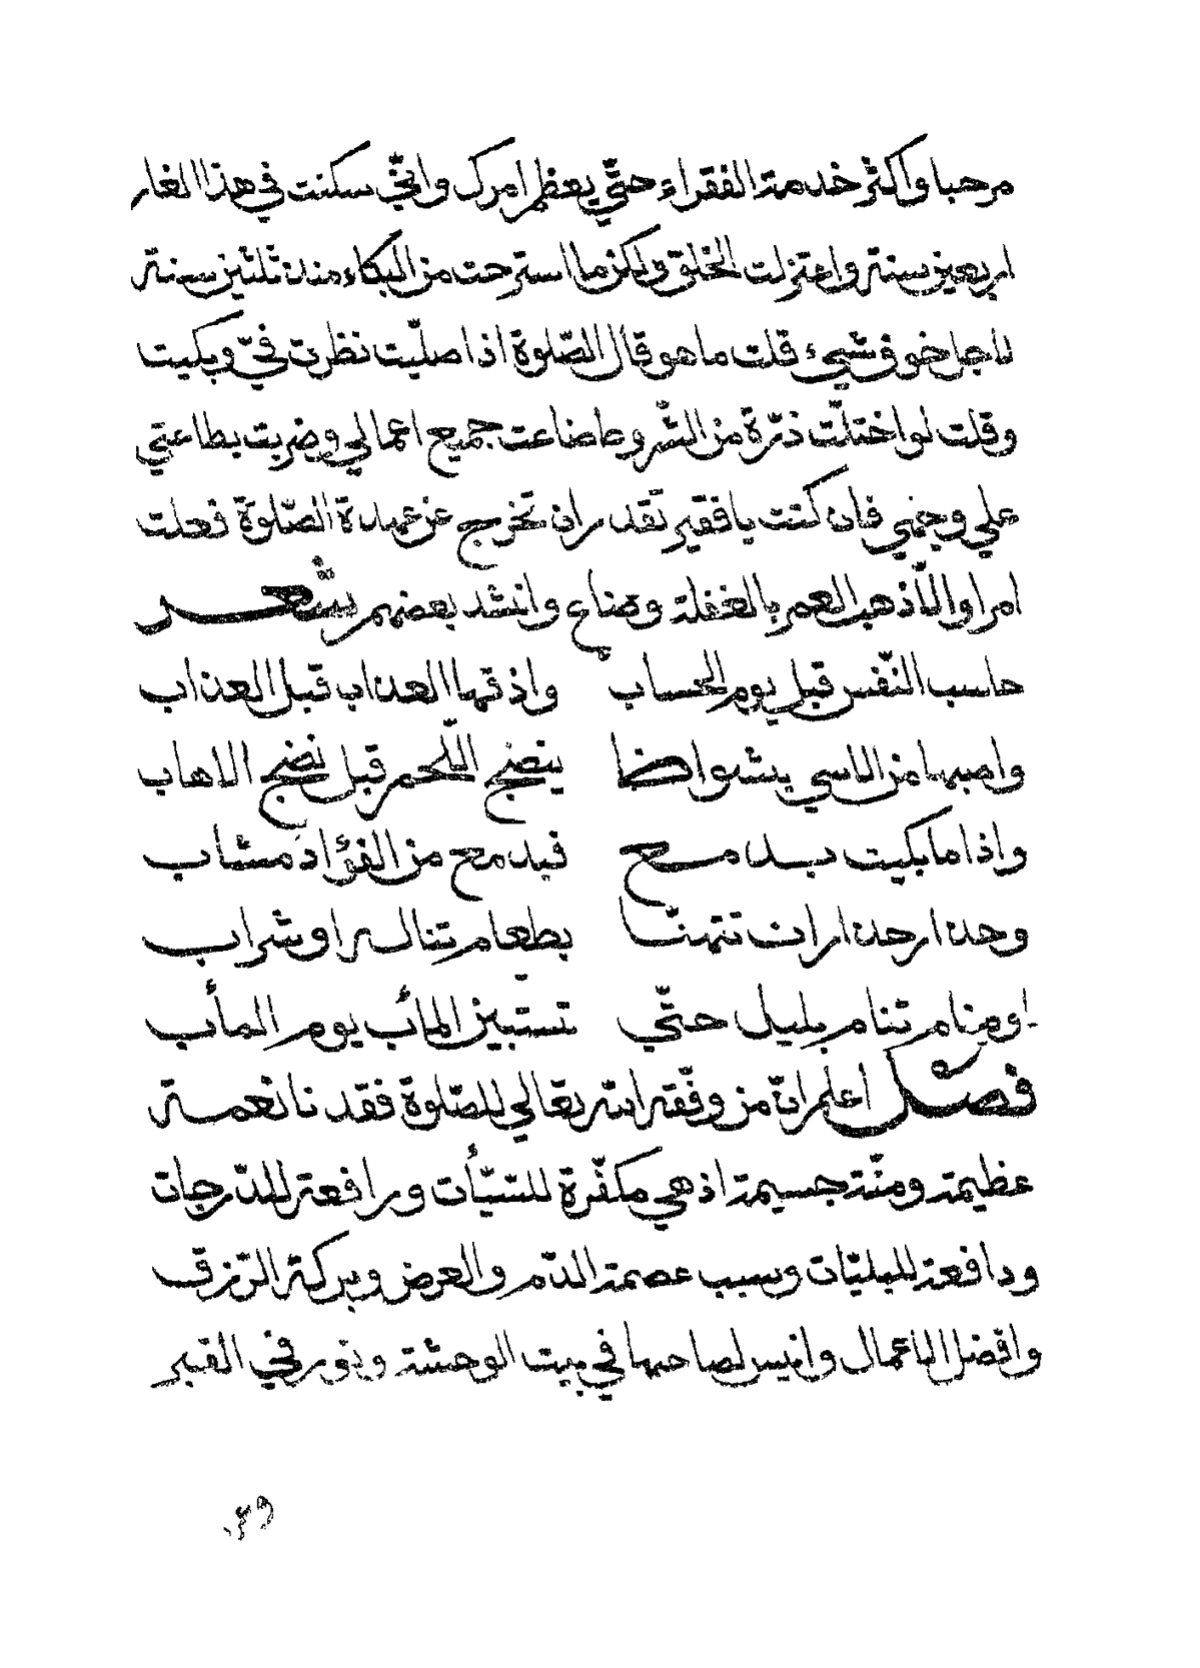 مرحبا واكثر خدمة الفقراء حتّي يعظم امرك وانّي سكنت في هذا الغار
اربعين سنة واعتزلت الخلق ولكن ما استرحت من البكاء منذ ثلثين سنة
لاجل خوف شيء قلت ما هو قال الصّلوة اذا صليّت نظرت فيّ وبكيت
وقلت لو اختلّت ذرّة من الشّروط ضاعت جميع اعمالي وضربت بطاعتي
علي وجهي فان كنت يا فقير تقدر ان تخرج عن عهدة الصّلوة فعلت
امرا والّا ذهب العمر بالغفلة وضاع وانشد بعضهم شعر
حاسب النّفس قبل يوم الحساب واذقها العذاب قبل العذاب
واصبها من الاسي بشواظ ينضج اللّحم قبل نضج الاهاب
واذا ما بكيت بدمع فبدمع من الفؤاد مشاب
وحذار حذار ان تتهنّا بطعام تناله او شراب
او منام تنام بليل حتّي تستبين المأب يوم المأب
فصل اعلم انّ من وفّقه الله تعالي للصّلوة فقد نا نعمة
عظيمة ومنّة جسيمة اذ هي مكفّرة للسّيّأت ورافعة للدّرجات
ودافعة للبليّات وسبب عصمة الدّم والعرض وبركة الرّزق
وافضل الاعمال وانيس لصاحبها في بيت الوحشة ونور في القبر